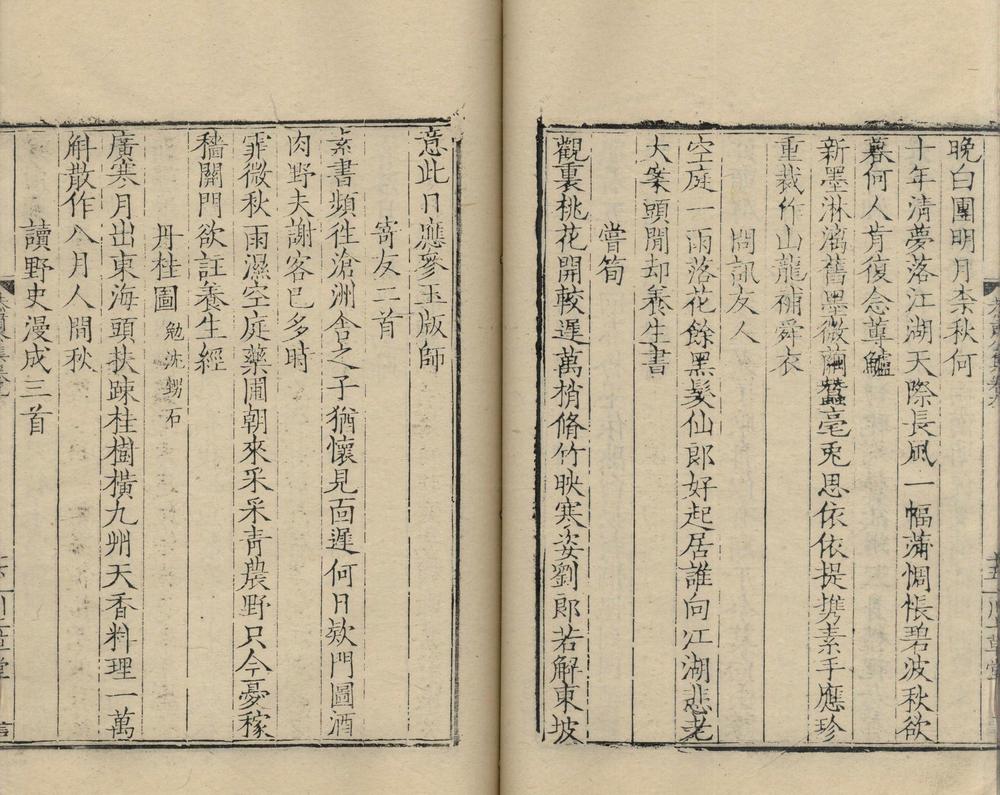 晚白團明月奈秋何
十年清夢落江湖天際長風一幅蒲惆悵碧波秋欲
暮何人肯復念蓴鱸
新墨淋漓舊墨微繭蠶毫兎思依依提携素手應珍
重裁作山龍補舜衣
問訊友人
空庭一雨落花餘黑髮仙郎好起居誰向江湖悲老
大案頭閒却養生書
嘗筍
觀裏桃花開較遲萬梢脩竹映寒姿劉郎若解東坡
意此日應參玉版師
寄友二首
素書頻徃滄洲舍之子猶懷見面遲何日欵門圖酒
肉野夫謝客已多時
霏微秋雨濕空庭藥圃朝來采采青農野只今憂稼
穡關門欲註養生經
丹桂圖 勉沈鍔石
廣寒月出東海頭扶踈桂樹橫九州天香料理一萬
斛散作八月人間秋
讀野史漫成三首